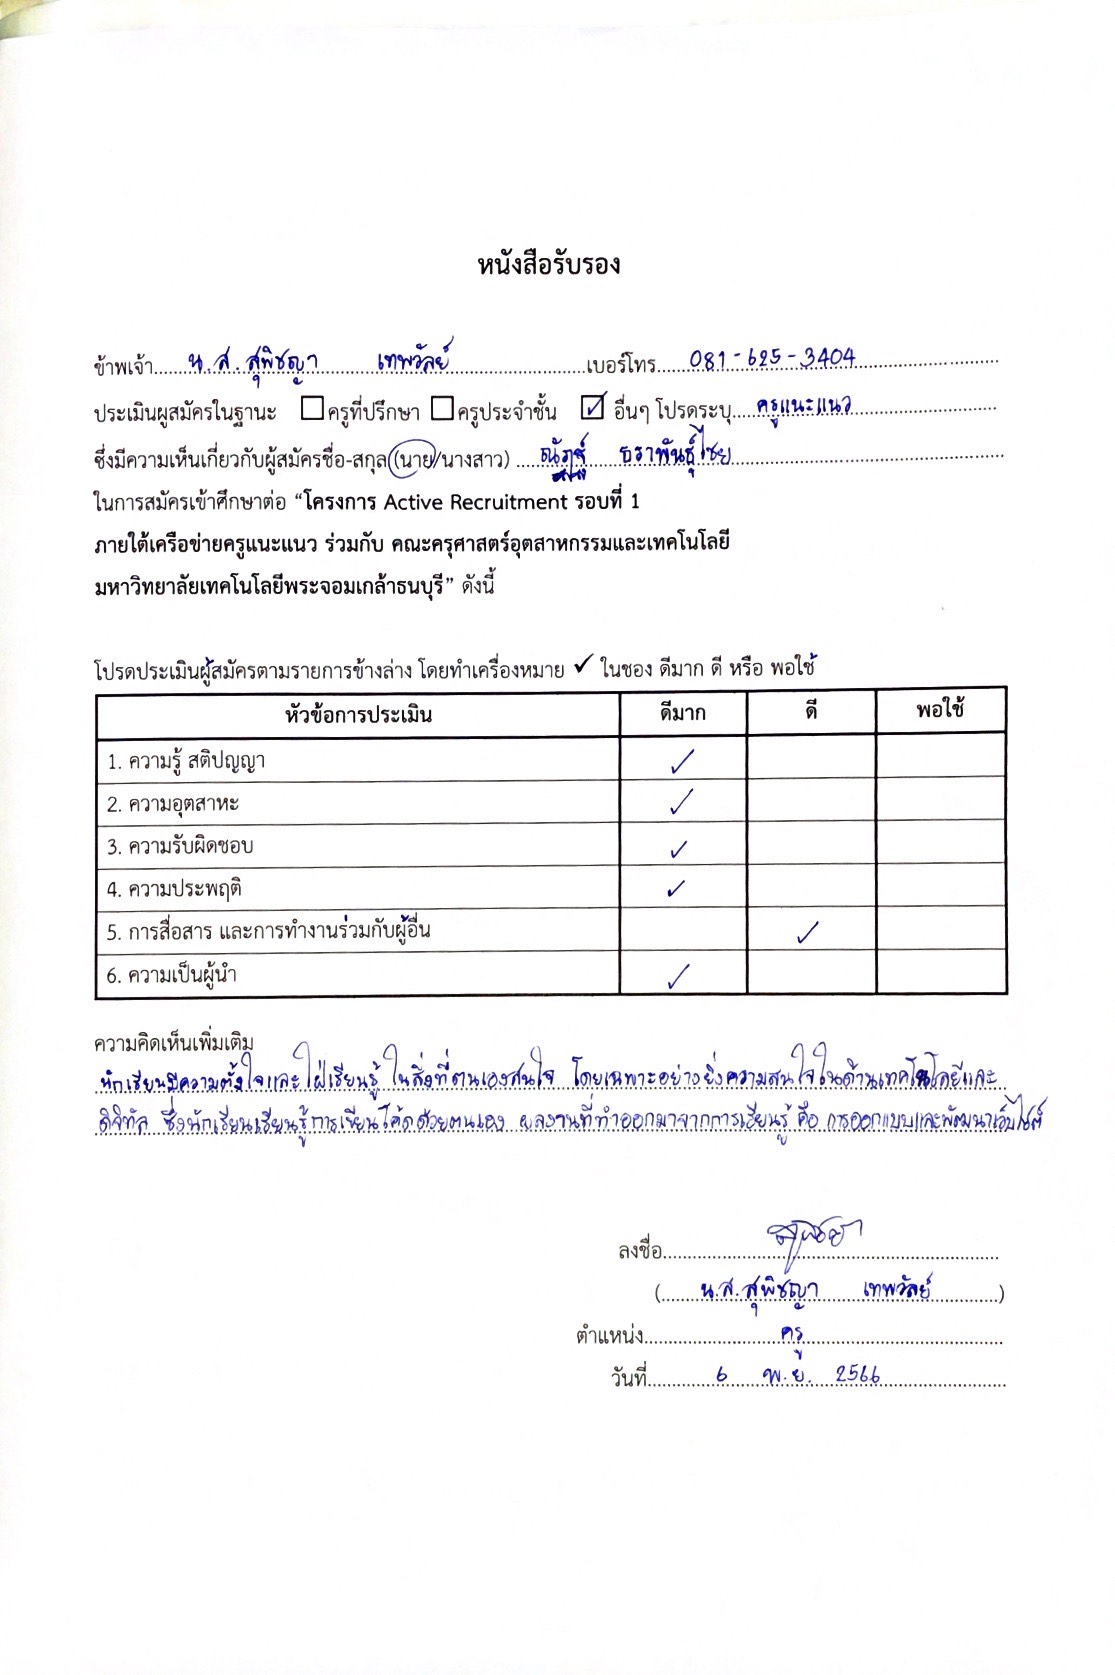 หนังสือรับรอง
ข้าพเจ้า น.ส. สุพิชญา เทพวัลย์ เบอร์โทร 081-625-3404
ประเมินผู้สมัครในฐานะ ☐ ครูที่ปรึกษา ☐ ครูประจำชั้น ☑ อื่นๆ โปรดระบุ ครูแนะแนว
ซึ่งมีความเห็นเกี่ยวกับผู้สมัครชื่อ-สกุล (นาย/นางสาว) ณัฏฐ์ ธราพันธุ์ไชย
ในการสมัครเข้าศึกษาต่อ “โครงการ Active Recruitment รอบที่ 1
ภายใต้เครือข่ายครูแนะแนว ร่วมกับ คณะครุศาสตร์อุตสาหกรรมและเทคโนโลยี
มหาวิทยาลัยเทคโนโลยีพระจอมเกล้าธนบุรี” ดังนี้
โปรดประเมินผู้สมัครตามรายการข้างล่าง โดยทำเครื่องหมาย ✓ ในช่อง ดีมาก ดี หรือ พอใช้
หัวข้อการประเมิน ดีมาก ดี พอใช้
1. ความรู้ สติปัญญา ✓
2. ความอุตสาหะ ✓
3. ความรับผิดชอบ ✓
4. ความประพฤติ ✓
5. การสื่อสาร และการทำงานร่วมกับผู้อื่น ✓
6. ความเป็นผู้นำ ✓
ความคิดเห็นเพิ่มเติม
นักเรียนมีความตั้งใจและใฝ่เรียนรู้ ในสิ่งที่ตนเองสนใจ โดยเฉพาะอย่างยิ่งความสนใจในด้านเทคโนโลยีและ
ดิจิทัล ซึ่งนักเรียนเรียนรู้การเขียนโค้ดด้วยตนเอง ผลงานที่ทำออกมาจากการเรียนรู้ คือ การออกแบบและพัฒนาเว็บไซต์
ลงชื่อ สุพิชญา
(น.ส. สุพิชญา เทพวัลย์)
ตำแหน่ง ครู
วันที่ 6 พ.ย. 2566